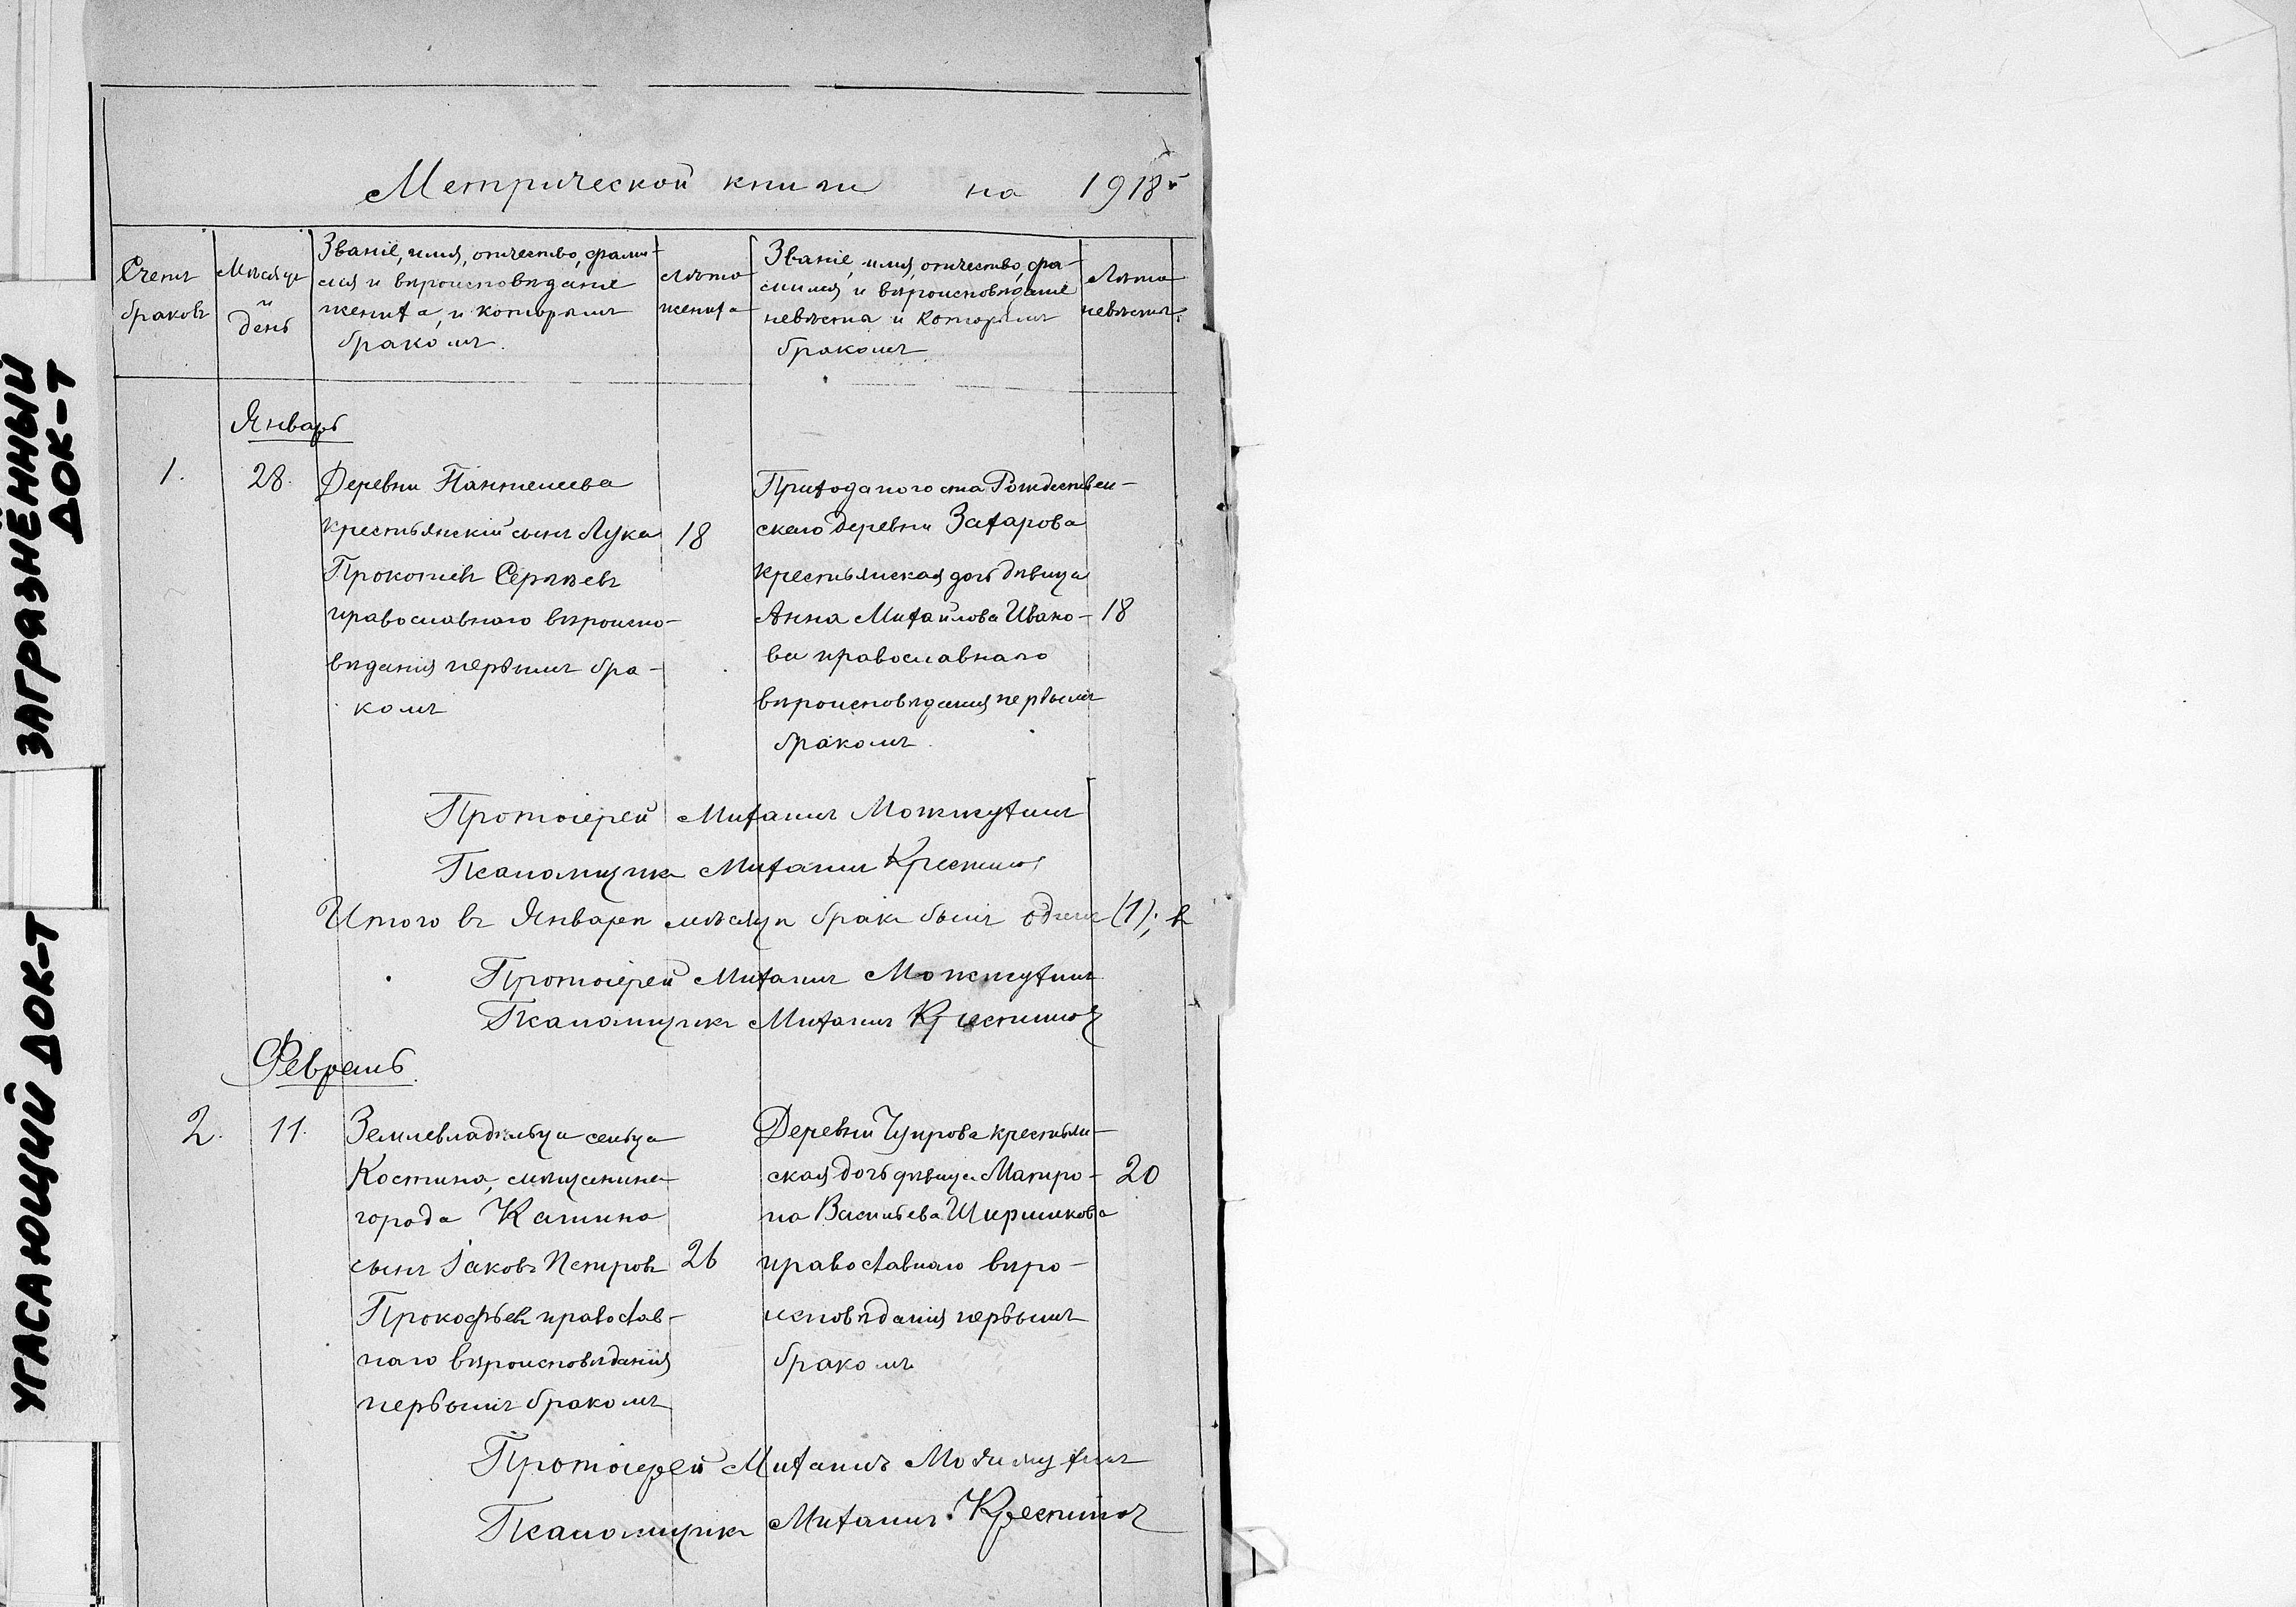 ЗАГРЯЗНЁННЫЙ
ДОК-Т
УГАСАЮЩИЙ ДОК-Т
Метрической книги на 1918 г
Счетъ
браковъ
Мѣсяцъ
и
день
Званіе, имя, отчество, фами-
лія и вѣроисповѣданіе
жениха, и которымъ
бракомъ.
Лѣта
жениха
Званіе, имя, отчество, фа-
милія и вѣроисповѣданіе
невѣсты и которымъ
бракомъ
Лѣта
невѣсты.
Январь
1.
28.
Деревни Пантелеева
крестьянскій сынъ Лука
Прокопіевъ Сергѣевъ
православнаго вѣроиспо-
вѣданія первымъ бра-
комъ
18
Прихода погоста Рождествен-
скаго деревни Захарова
крестьянская дочь дѣвица
Анна Михаилова Ивано-
ва православнаго
вѣроисповѣданія первымъ
бракомъ.
18
Протоіерей Михаилъ
Псаломщикъ Михаилъ
Итого въ Январѣ мѣсяцѣ бракъ былъ одинъ (1);
Протоіерей Михаилъ
Псаломщикъ Михаилъ
Февраль.
2.
11.
Землевладѣльца сельца
Костина, мѣщанина
города Кашина
сынъ Іаковъ Петровъ
Прокофьевъ православ-
наго вѣроисповѣданія
первымъ бракомъ
26
Деревни крестьян-
ская дочь дѣвица Матро-
на Васильева Ширшикова
православнаго вѣро-
исповѣданія первымъ
бракомъ
20
Протоіерей Михаилъ
Псаломщикъ Михаилъ